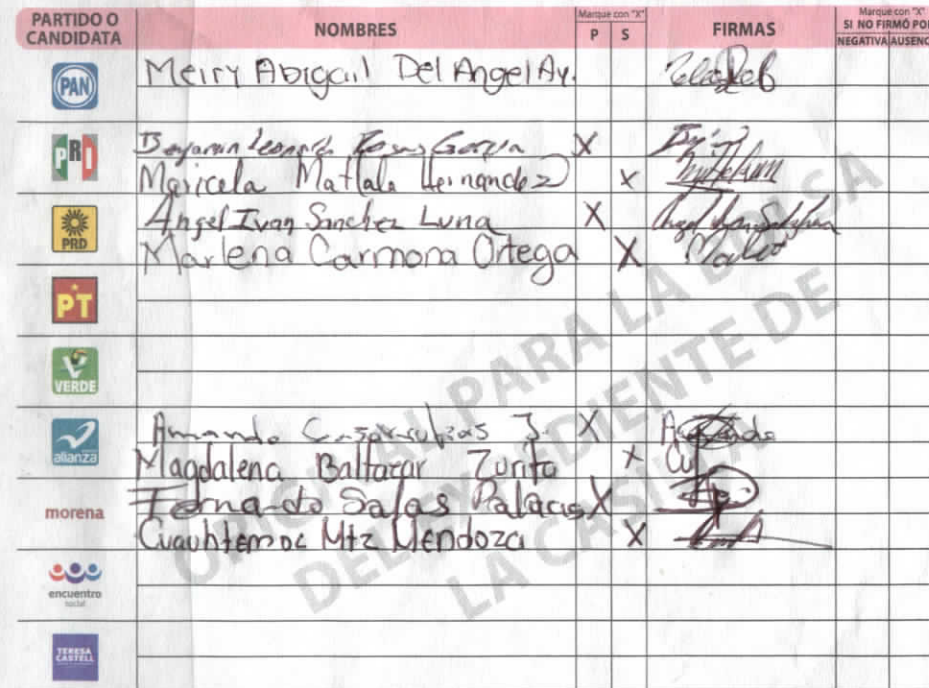 PARTIDO O CANDIDATA NOMBRES Marque con "X" P S FIRMAS Marque con "X" SI NO FIRMÓ POR NEGATIVA AUSENC
PAN Meiry Abigail Del Angel Av.
PRI Benjamin Leonardo Rosas Garcia X
Maricela Matlala Hernandez X
PRD Angel Ivan Sanchez Luna X
Marlena Carmona Ortega X
PT
VERDE
alianza Armando Casarrubias J. X
Magdalena Baltazar Zurita X
morena Fernando Salas Palacios X
Cuauhtemoc Mtz Mendoza X
encuentro social
TERESA CASTELL
ORIGINAL PARA LA BOLSA
DEL EXPEDIENTE DE
LA CASILLA